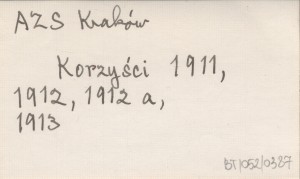 AZS Kraków
Korzyści 1911,
1912, 1912 a,
1913
BT/052/0387